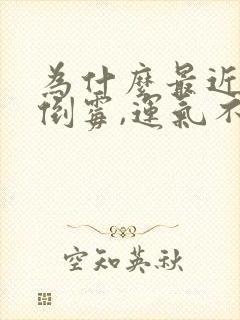 为什麼最近
倒霉,運氣不
空知英秋